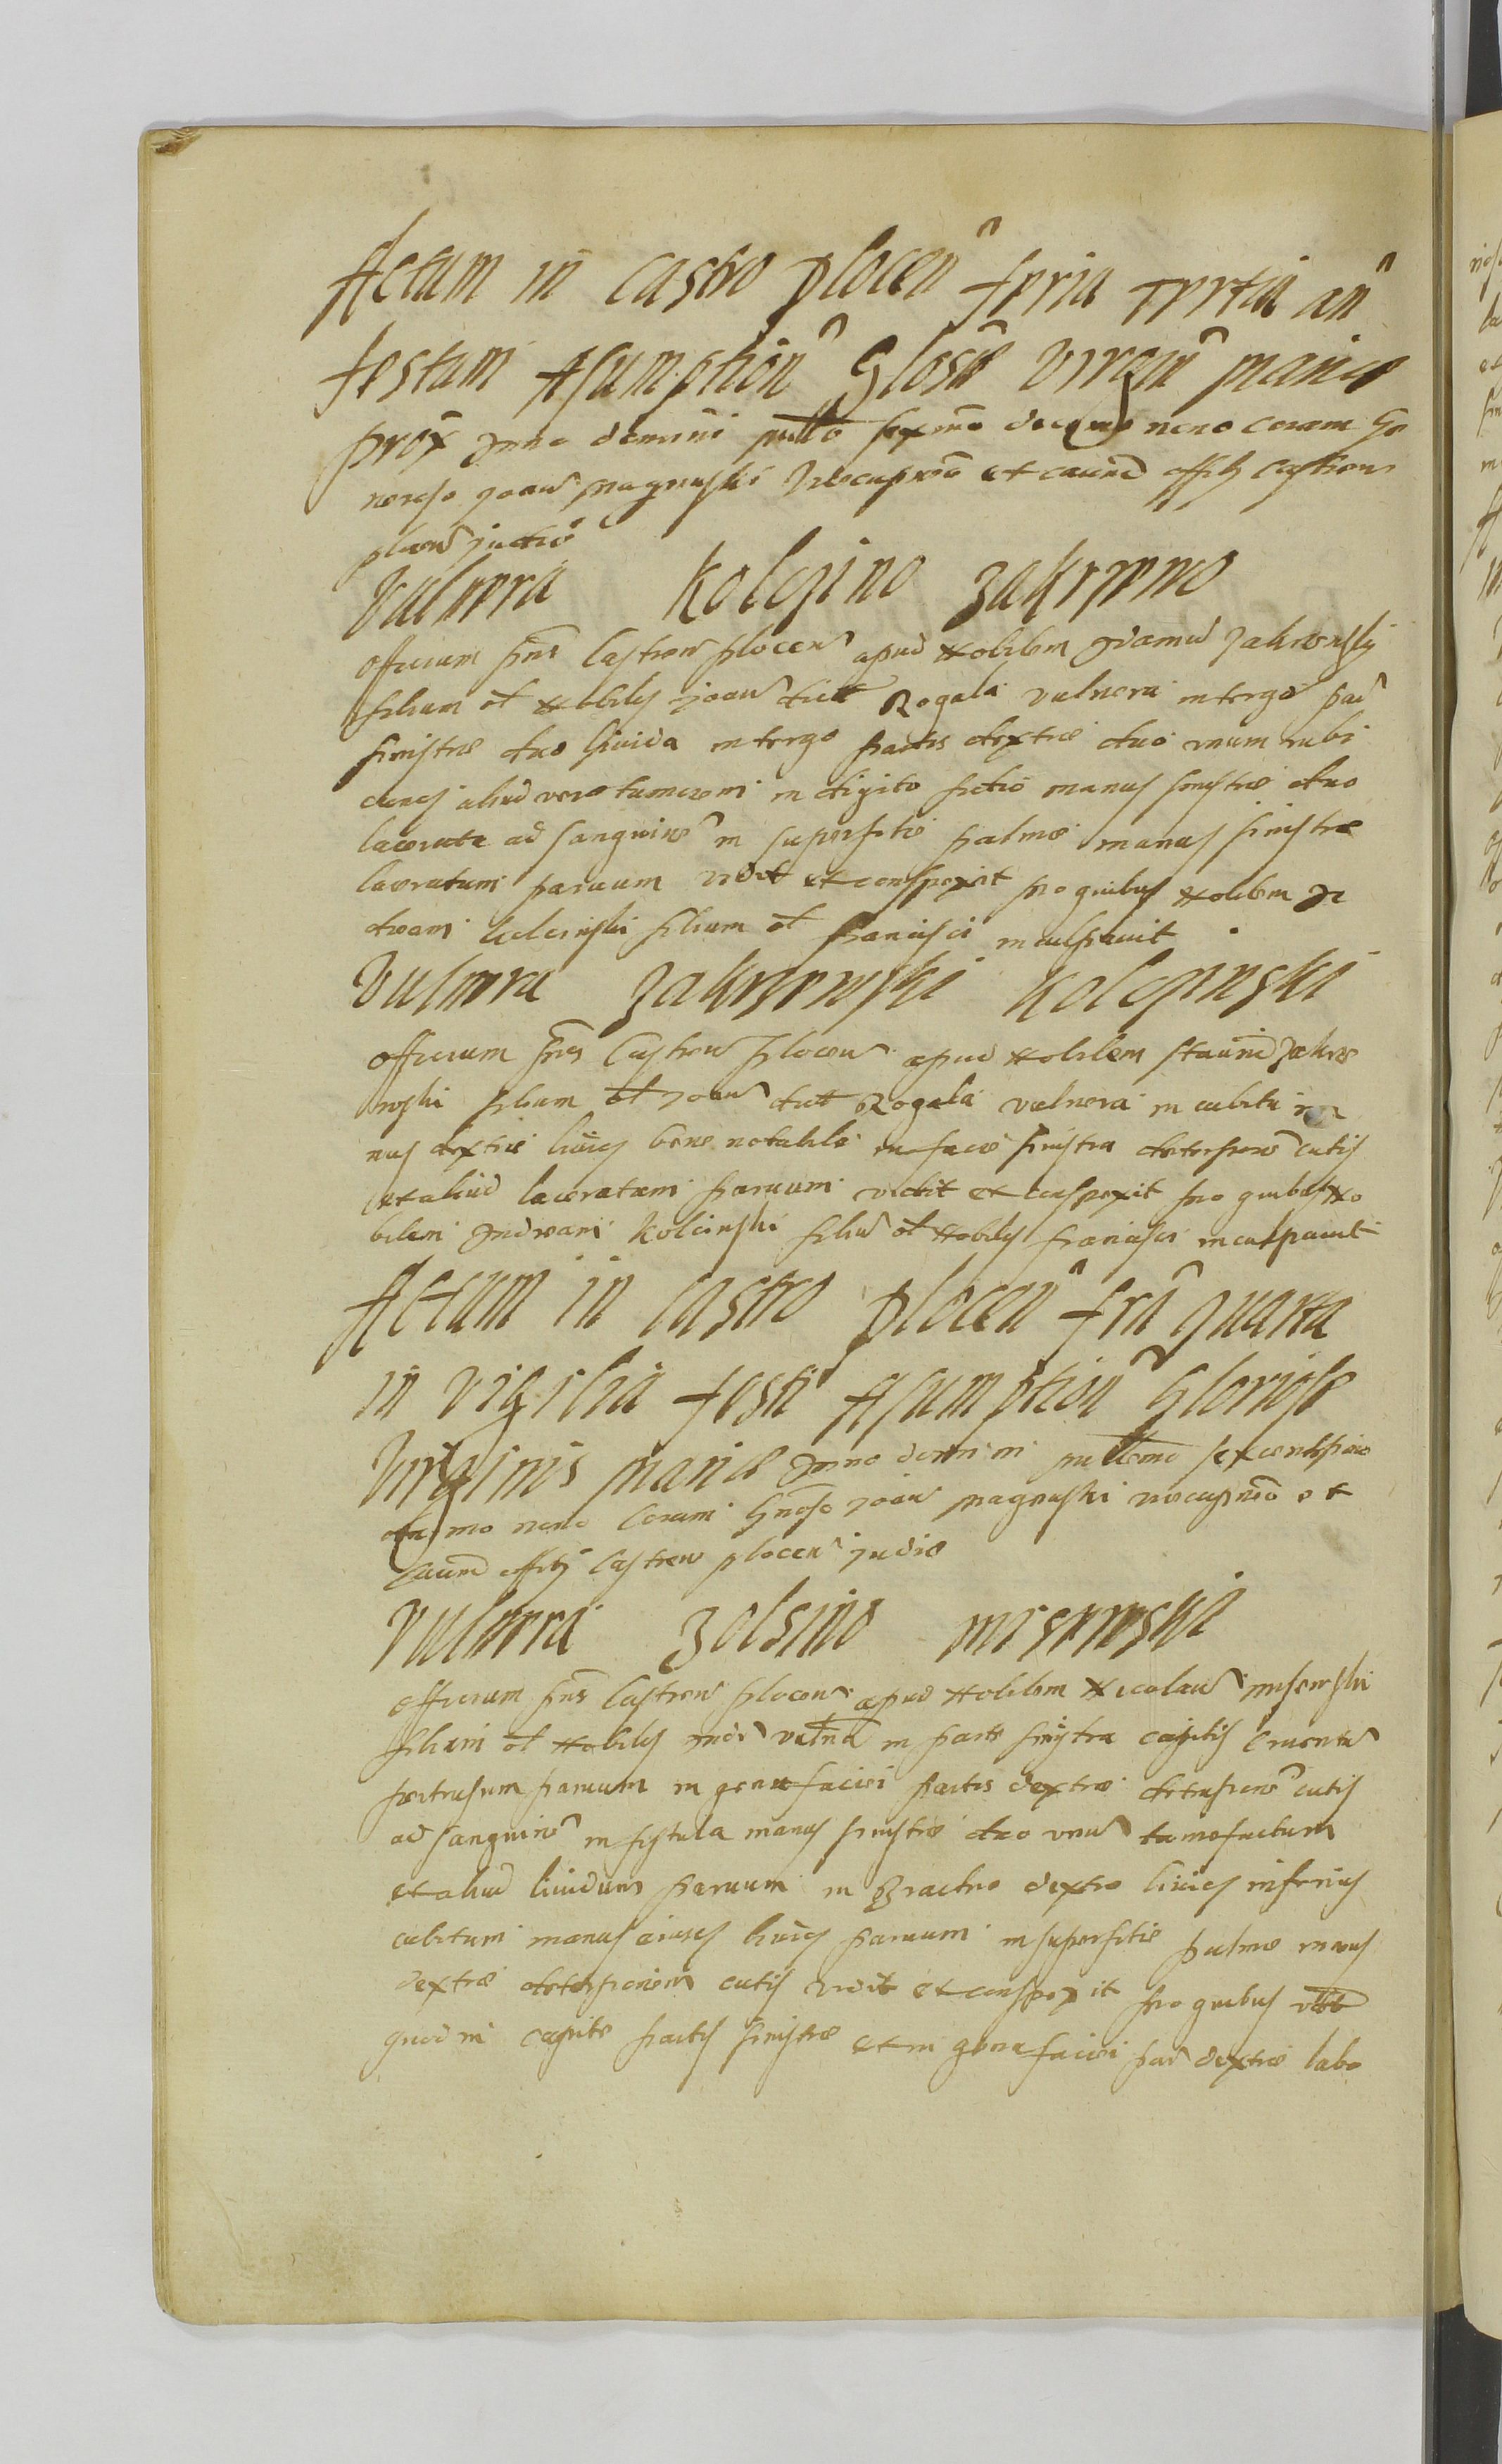 Actum in Castro plocen feria Tertia an
festum Asumption Glose Virgin Mariae
prox Anno domini mill sexmo decimo nono coram Ge
neroso Joan Magnuski Vicecapneo et caund offitj Castren
plocen judice
Vulnera Kolczino Zakrzewo
Officium pns Castren plocen apud Nobilem Adamu Zakrzewskj
filium ol Nobilis Joan dict Rogala vulnera in tergo par
sinistrae duo livida in tergo partis dextrae duo unum rubi
cundus aliud vero tumorem in digito manus sinistrae duo
lacerata ad sanguine in superfitie palmae manus sinistrae
laceratum paruum vidit et conspexit pro quibus Nobilem A
dream Kolcinski filium ol Francisci inculpauit
Vulnera Zakrzewski Kolczinski
Officium pns Castren Plocen apud Nobilem Staund Zakrze
wski filium ol Joan dict Rogala vulnera in cubitu ma
nus dextrae livicu bene notabile in facie sinistra detersione cutis
et aliud laceratam paruum vidit et conspexit pro quibus No
bilem Andream Kolcinski filiu ol Nobilis Francisci inculpauit
Actum in Castro plocen fria quarta
in vigilia festi Asumption Gloriose
Virginis Mariae Anno domini millemo sexcentesimo
decimo nono Coram Gnoso Joan Magnuski vicecapneo et
Caund offitj Castren plocen judice
Vulnera Zolsino Misewski
Officium pns Castren plocen apud Nobilem Nicolau Misewski
filium ol Nobilis And vulna in parte sinistra capitis cruentu
pertrusum paruum in gena faciei partis dextrae detrusione cutis
ad sanguine in fistula manus sinistrae duo unu tumefactum
et aliud lividum paruum in Brachio dextro livicu inferius
cubitum manus eiusq livicu paruum in superfitie palmae manus
dextrae detersionem cutis vidit et conspexit pro quibus
quod in capite partis sinistrae et in gena faciei par dextrae labo